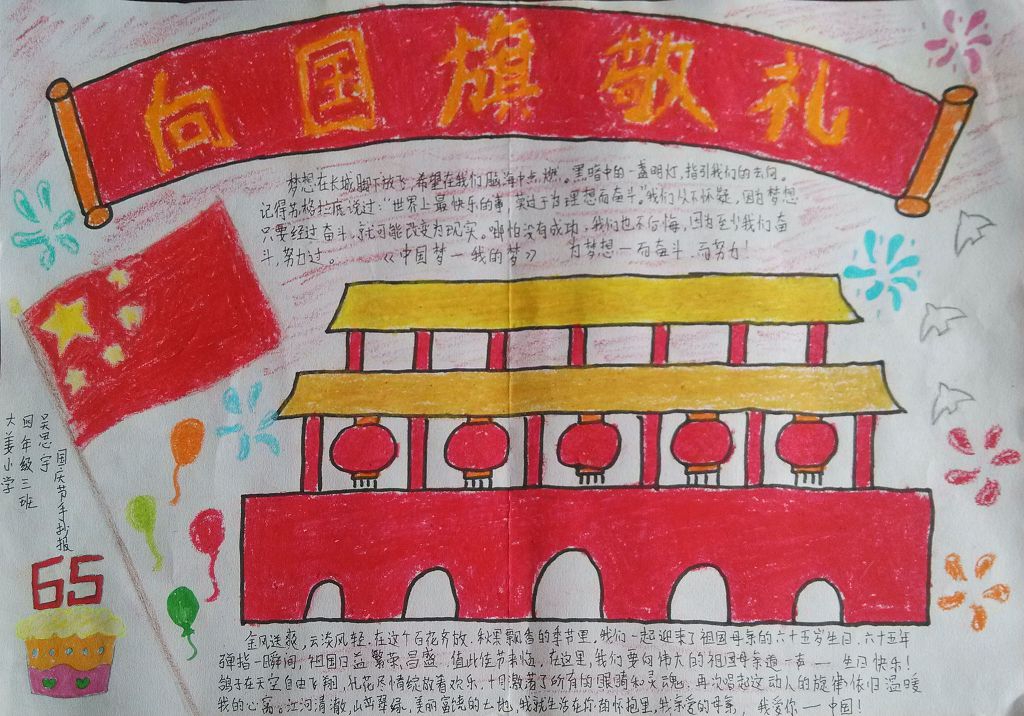 向国旗敬礼
梦想在长城脚下放飞,希望在我们脑海中点燃。黑暗中的一盏明灯,指引我们的去向。
记得苏格拉底说过:“世界上最快乐的事,莫过于为理想而奋斗。”我们从不怀疑,因为梦想
只要经过奋斗,就可能改变为现实。哪怕没有成功,我们也不后悔,因为至少我们奋
斗,努力过。 《中国梦—我的梦》 为梦想—而奋斗.而努力!
国庆节手抄报
吴思宇
四年级三班
大姜小学
65
金风送爽,云淡风轻,在这个百花齐放.秋果飘香的季节里,我们一起迎来了祖国母亲的六十五岁生日,六十五年
弹指一瞬间,祖国日益繁荣昌盛 值此佳节来临,在这里,我们要向伟大的祖国母亲道一声—生日快乐!
鸽子在天空自由飞翔,礼花尽情绽放着欢乐,十月激荡了所有的眼睛和灵魂,再次唱起这动人的旋律依旧温暖
我的心窝。江河清澈,山峦翠绿,美丽富饶的土地,我就生活在你的怀抱里,我亲爱的母亲, 我爱你—中国!